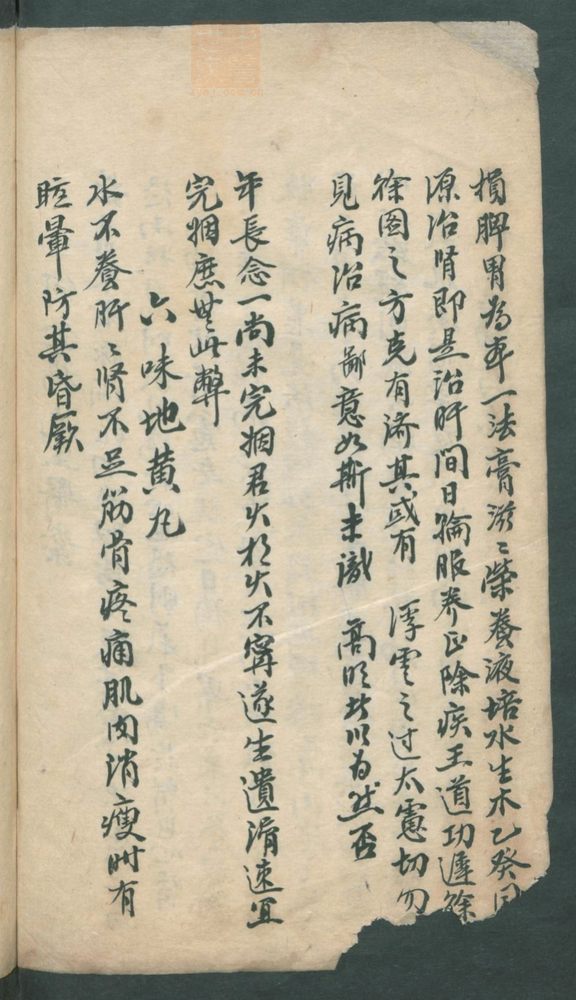 損脾胃為本一法膏滋〻榮養液培水生木乙癸同
源治腎即是治肝間日輪服养正除疾王道功遲緩
徐图之方克有濟其或有 浮雲之过太憲切勿
見病治病鄙意如斯未識 高明者以为然否
年長念一尚未完姻君火相火不寧遂生遺濁速宜
完姻庶無此弊
六味地黄丸
水不養肝〻腎不足筋骨疼痛肌肉消瘦时有
眩暈防其昏厥